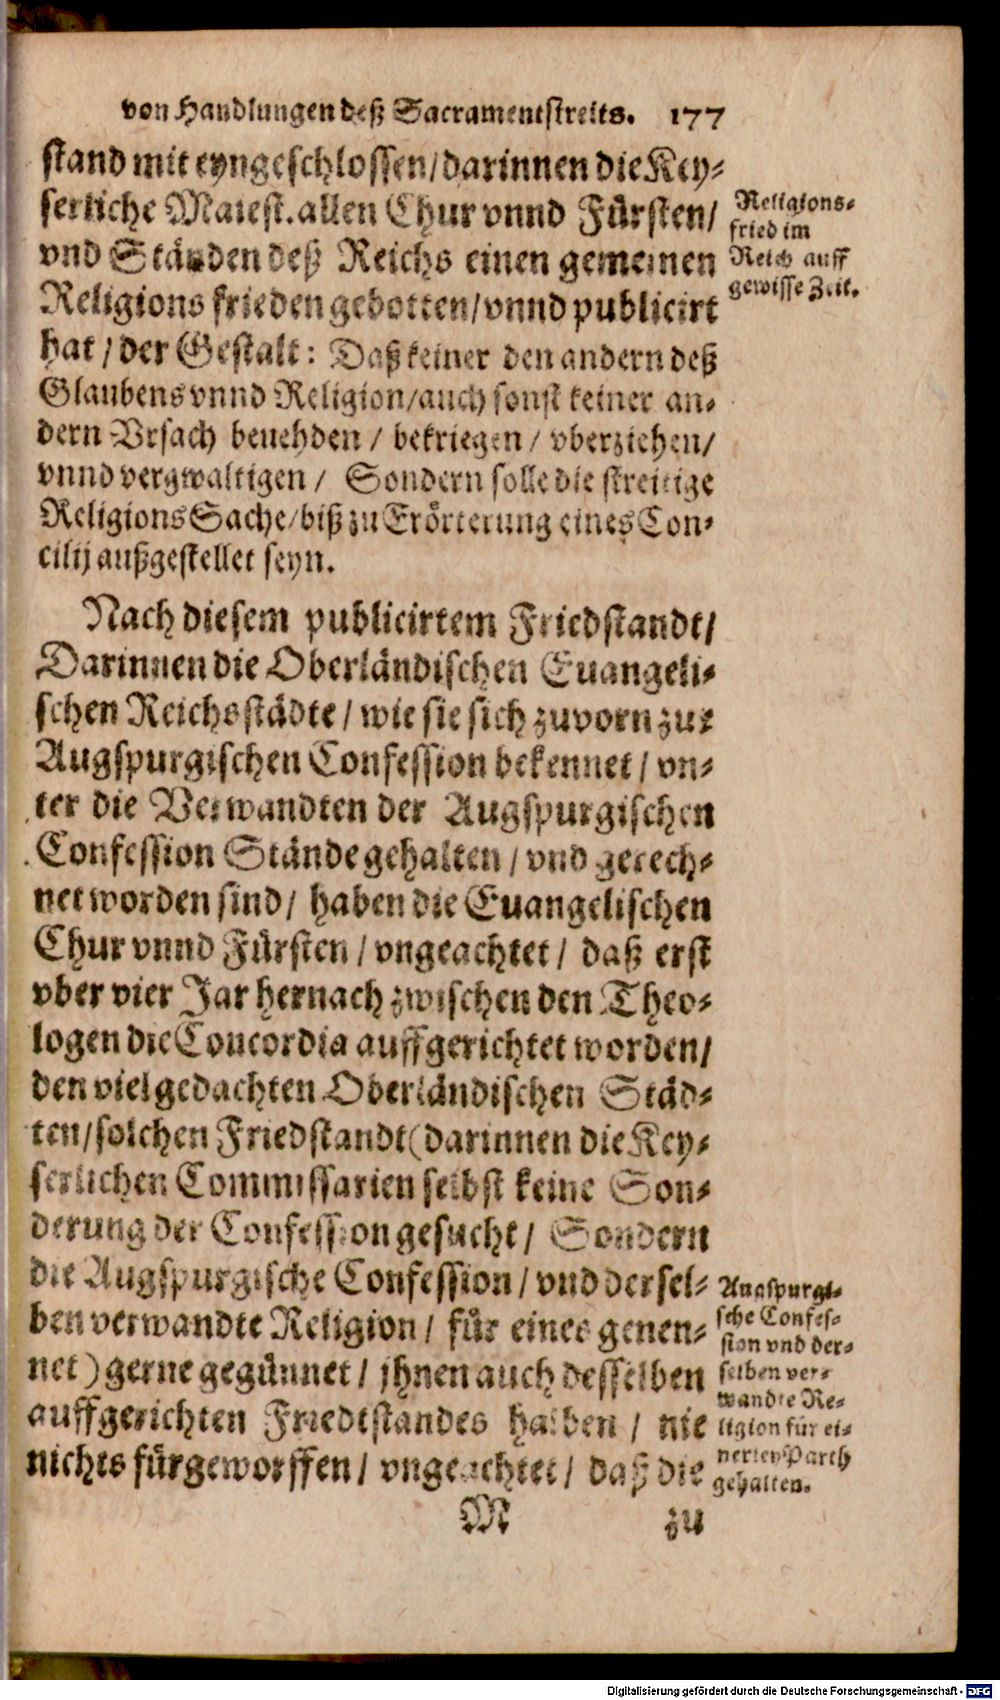 von Handlungen deß Sacramentstreits. 177
stand mit eyngeschlossen/darinnen die Key-
serliche Maiest. allen Chur vnnd Fürsten/
vnd Ständen deß Reichs einen gemeinen
Religions frieden gebotten/vnnd publicirt
hat/der Gestalt: Daß keiner den andern deß
Glaubens vnnd Religion/auch sonst keiner an-
dern Vrsach beuehden / bekriegen / vberziehen/
vnnd vergwaltigen / Sondern solle die streitige
Religions Sache/biß zu Erörterung eines Con-
cilij außgestellet seyn.
Religions-
fried im
Reich auff
gewisse Zeit.
Nach diesem publicirtem Friedstandt/
Darinnen die Oberländischen Euangeli-
schen Reichsstädte / wie sie sich zuvorn zur
Augspurgischen Confession bekennet / vn-
ter die Verwandten der Augspurgischen
Confession Stände gehalten / vnd gerech-
net worden sind/ haben die Euangelischen
Chur vnnd Fürsten / vngeachtet / daß erst
vber vier Jar hernach zwischen den Theo-
logen die Concordia auffgerichtet worden/
den vielgedachten Oberländischen Städ-
ten/solchen Friedstandt (darinnen die Key-
serlichen Commissarien selbst keine Son-
derung der Confession gesucht / Sondern
die Augspurgische Confession / vnd dersel-
ben verwandte Religion / für eines genen-
net) gerne gegünnet / jhnen auch desselben
auffgerichten Friedtstandes halben / nie
nichts fürgeworffen / vngeachtet / daß die
Augspurgi-
sche Confes-
sion vnd der-
selben ver-
wandte Re-
ligion für ei-
nerley Parth
gehalten.
M zu
Digitalisierung gefördert durch die Deutsche Forschungsgemeinschaft - DFG